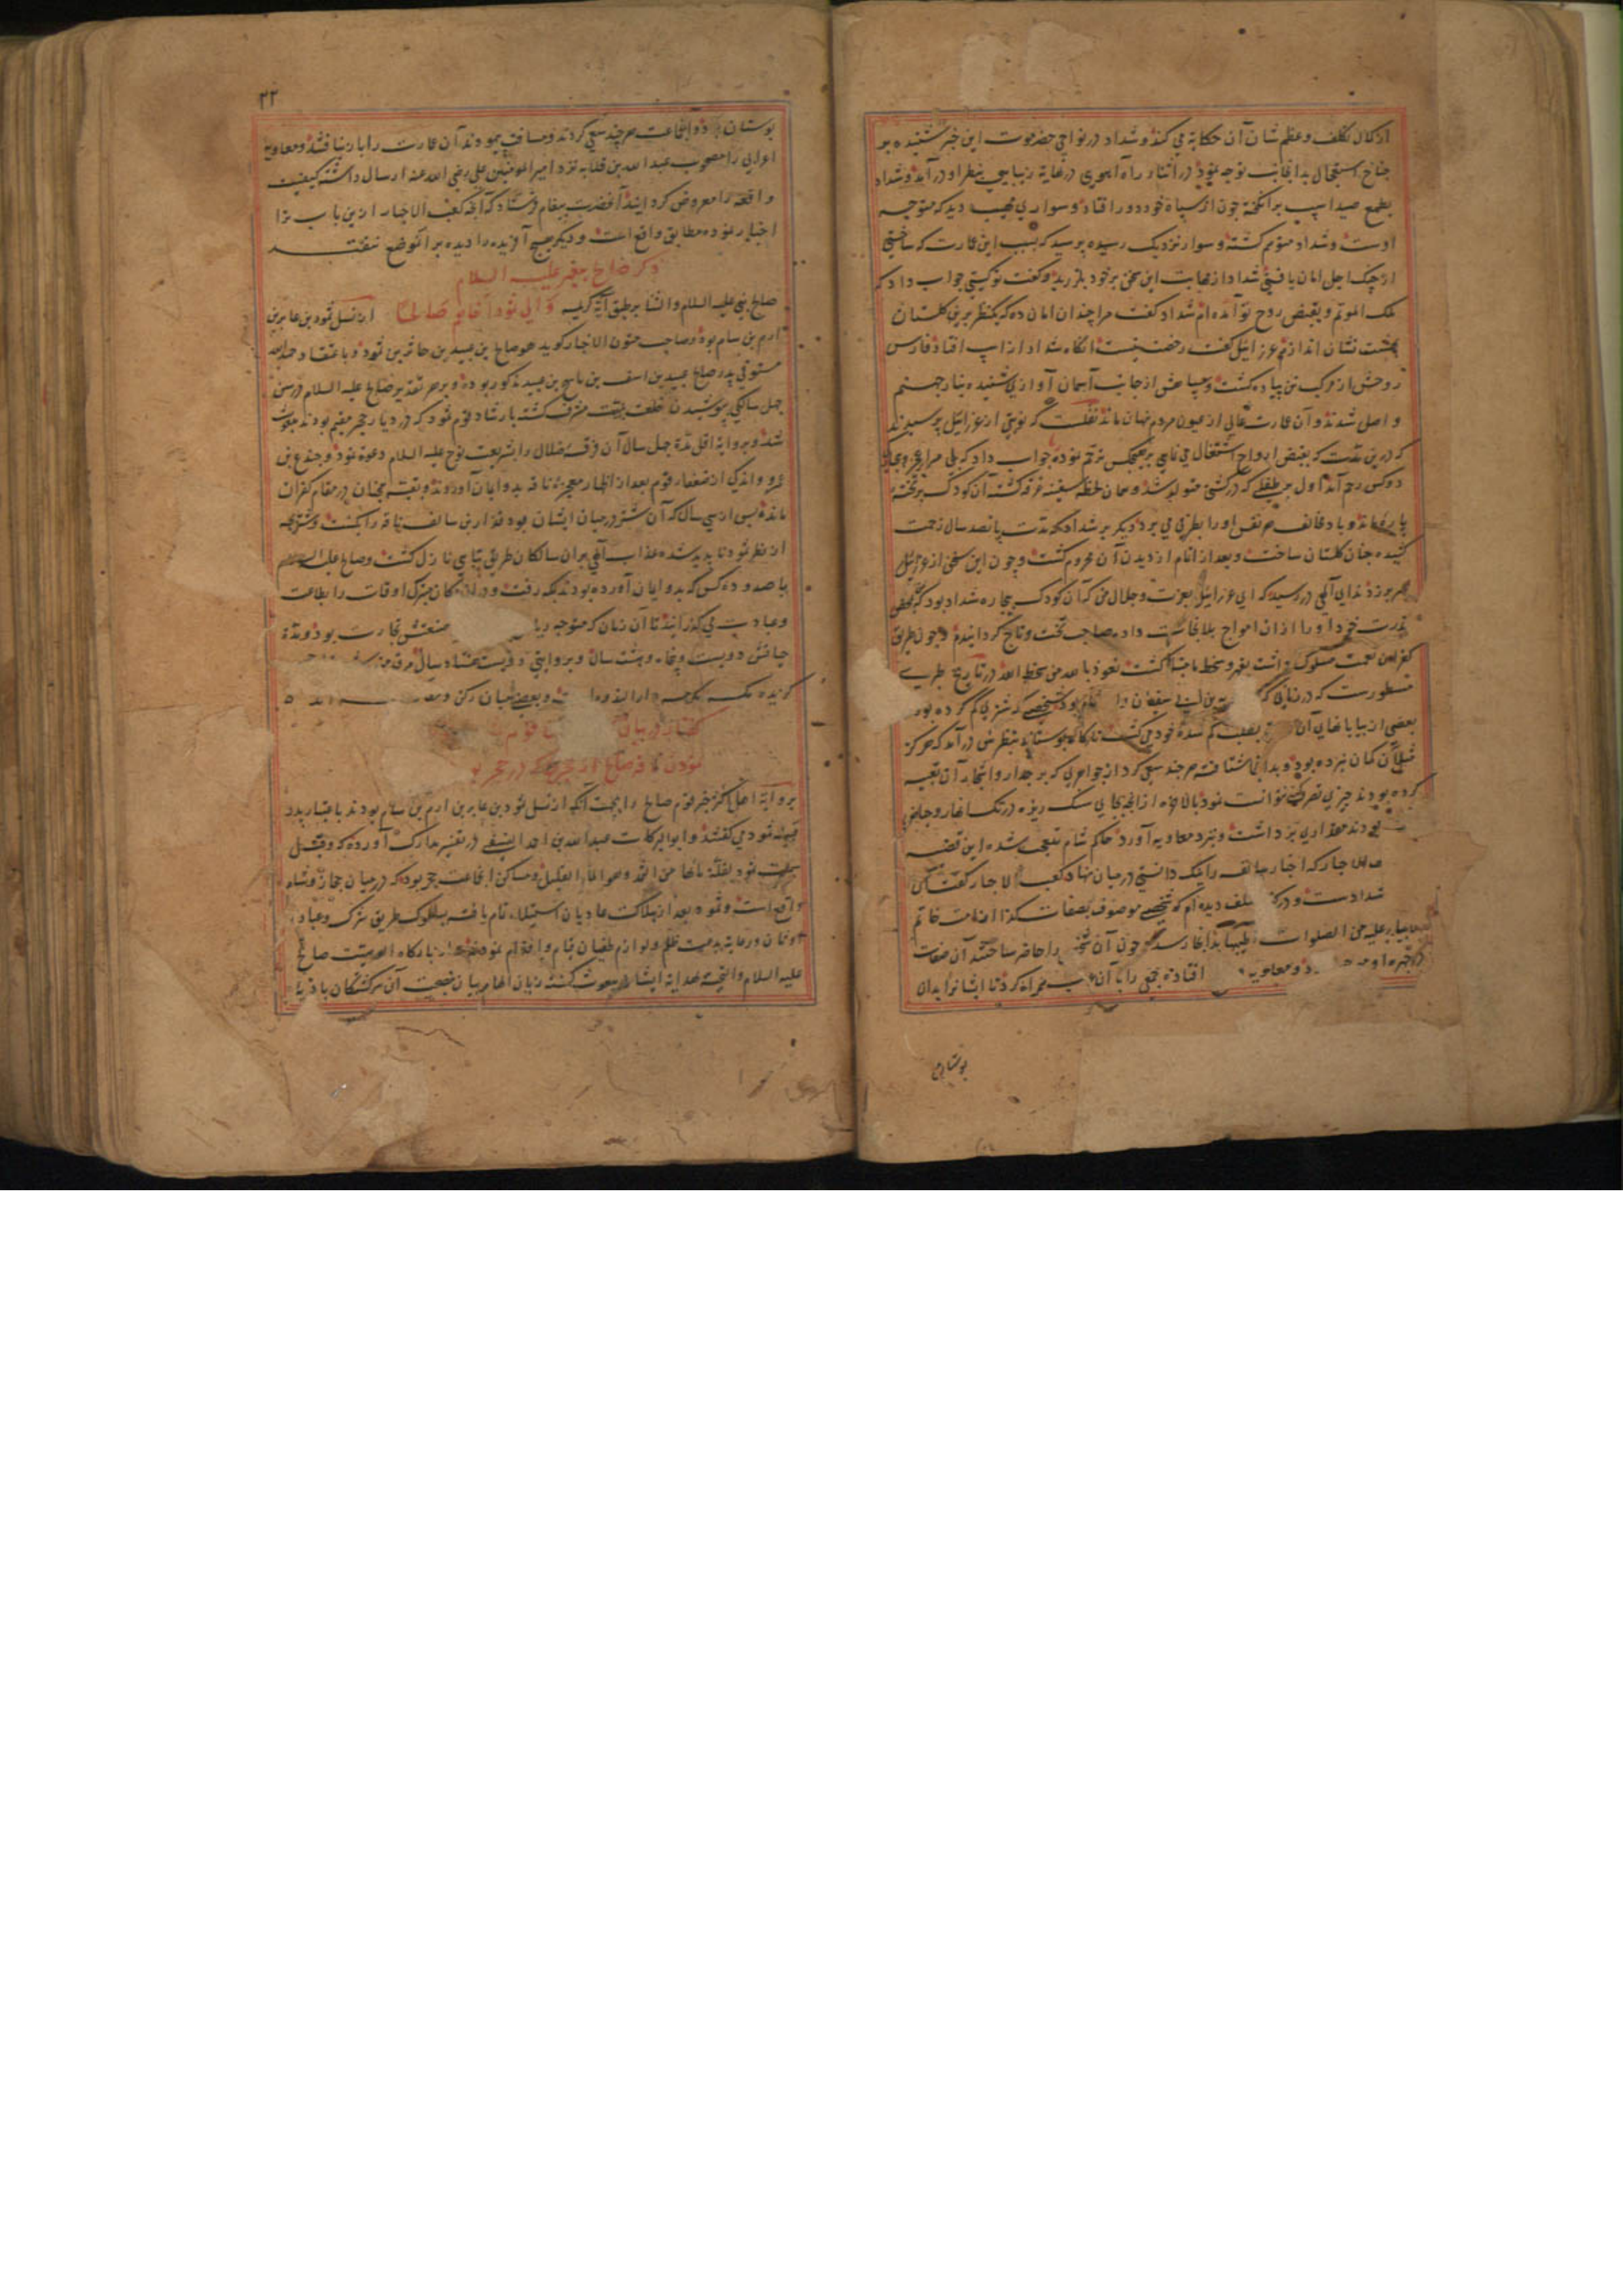 از کمال تکلف و عظم شان آن حکایة می کنند و شداد در نواحی حضرموت این خبر شنیده بر
جناح استعجال بدانجانب توجه نمود در اثناء راه آهوی در غایة زیبایی بنظر او در آمد و شداد
بطمع صید اسپ برانگیخته چون از سپاه خود دور افتاد سواری مهیب دید که متوجه
اوست و شداد متوهم کشته و سوار نزدیک رسیده پرسید که بسبب این عمارت که ساختی
از چنک اجل امان یافتی شداد از مهابت این سخن بر خود بلرزید و کفت تو کیستی جواب داد که
ملک الموتم و بقبض روح تو آمده ام شداد کفت مرا چندان امان ده که یکنظر برین کلستان
بهشت نشان اندازم عزرائیل کفت رخصت نیست انکاه شداد از اسپ افتاد فارس
روحش از مرکب تن پیاده کشت و سپاهش از جانب آسمان آوازی شنیده بنار جهنم
واصل شدند و آن عمارت عالی از عیون مردم نهان ماند نقلست که نوبتی از عزرائیل پرسیدند
که درین مدت که بقبض ارواح اشتغال می نمایی بر هیچکس ترحم نموده جواب داد که بلی مرا بر
دو کس رحم آمد اول بر طفلی که در کشتی متولد شد و همان لحظه سفینه غرقه کشته آن کودک بر تخته
پاره بماند و باد مخالف هر نفس او را بطرفی می برد دیکر بر شداد که مدت پانصد سال زحمت
کشیده چنان کلستان ساخت و بعد از اتمام از دیدن آن محروم کشت و چون این سخن از عزرائیل
سر بر زد ندای آلهی در رسید که ای عزرائیل بعزت و جلال من که آن کودک بیچاره شداد بود که بمحض
قدرت خود او را از آن امواج بلا نجات داده صاحب تخت و تاج کردانیدم و چون طریق
کفران نعمت مسلوک داشت بقهر و سخط ما مبتلا کشت نعوذ بالله من سخط الله در تاریخ طبری
مسطورست که در زمانی که بود شخصی که شتری کم کرده بود
بعضی از بیابانهای آن بطلب کم شده خود می کشت ناکاه بوستانی بنظرش در آمد که هرکز
مثل آن کمان نبرده بود و بدانجا شتافته هر چند سعی کرد از جواهری که بر جدار و اشجار آن تعبیه
کرده بودند چیزی تصرف کند نتوانست نمود بالاخره از آنچه بجای سنک ریزه در تک انهار و حیاض
بودند مقداری برداشت و بنزد معاویه آورد حاکم شام متعجب شده این قضیه
الاحبار که اخبار سالف را نیک دانستی در میان نهاد کعب الاحبار کفت آن
شدادست و در کتب سلف دیده ام که شخصی موصوف بصفات کذا از امت خاتم
انبیا علیه من الصلوات اطیبها بدانجا رسد چون آن شخص را حاضر ساختند آن صفات
در چهره او و معاویه افتاده جمعی را با آن همراه کرد تا ایشانرا بدان
بوستان
۲۲
بوستان برد و آنجماعت هر چند سعی کردند و مسافت پیمودند آن عمارت را باز نیافتند و معاویه
اعرابی را مصحوب عبد الله بن قلابه نزد امیر المؤمنین علی رضی الله عنه ارسال داشته کیفیت
واقعه را معروض کردانید آنحضرت پیغام فرستاد که آنچه کعب الاخبار ازین باب ترا
اخبار نموده مطابق واقع است و دیکر هیچ آفریده را دیده بر آنموضع نیفتد
ذکر صالح پیغمبر علیه السلام
صالح نبی علیه السلام والثنا بر طبق آیة کریمه و الی ثمود اخاهم صالحا از نسل ثمود بن عابر بن
ارم بن سام بود و صاحب متون الاخبار کوید هو صالح بن عبید بن حاثر بن ثمود و باعتقاد حمد الله
مستوفی پدر صالح عبید بن اسف بن ماسح بن عبید مذکور بوده و بر هر تقدیر صالح علیه السلام در سن
چهل سالکی پوشیدن خلعت بعثت مشرف کشته بارشاد قوم ثمود که در دیار حجر مقیم بودند مبعوث
شد و بروایة اقل مدة چهل سال آن فرقه ضلال را بشریعت نوح علیه السلام دعوة نمود و جندع بن
عمرو و اندکی از ضعفاء قوم بعد از اظهار معجزه ناقه بدو ایمان آوردند و بقیه همچنان در مقام کفران
ماندند پس از سی سال که آن شتر در میان ایشان بود قدار بن سالف ناقه را بکشت و شتر بچه
از نظر ثمود ناپدید شده عذاب آلهی بران سالکان طریق تباهی نازل کشت و صالح علیه السلم
با صد و ده کس که بدو ایمان آورده بودند بمکه رفت و در آن مکان متبرک اوقات را بطاعت
و عبادت می کذرانید تا آن زمان که متوجه صنعتش تجارت بود و مدة
حیاتش دویست و پنجاه و هشت سال و بروایتی دویست هشتاد سال مرقد
و بعضی میان رکن و مقام
کفتار در بیان
نمودن
بروایة اهل اکثر خبر قوم صالح را بجهت آنکه از نسل ثمود بن عابر بن ارم بن سام بودند باعتبار پدر
قبیله ثمود می کفتند و ابو البرکات عبد الله بن احمد النسفی در تفسیر مدارک آورده که و قیل
سمیت ثمود لقلة مائها من الثمد و هو الماء القلیل و مساکن آنجماعت حجر بود که در میان حجاز و شام
واقع است و ثمود بعد از هلاکت عادیان استیلاء تام یافته بسلوک طریق شرک و عبادة
اوثان و رعایة بدعت ظلم و لوازم طغیان قیام و اقدام نمودند از بارکاه الوهیت صالح
علیه السلام والتحیة بهدایة ایشان مبعوث کشته زبان الهام بیان بنصیحت آن سرکشتکان بادیه